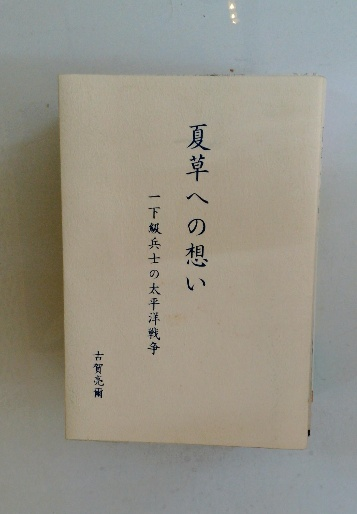 夏草への想い
一下級兵士の太平洋戦争
古賀亮爾